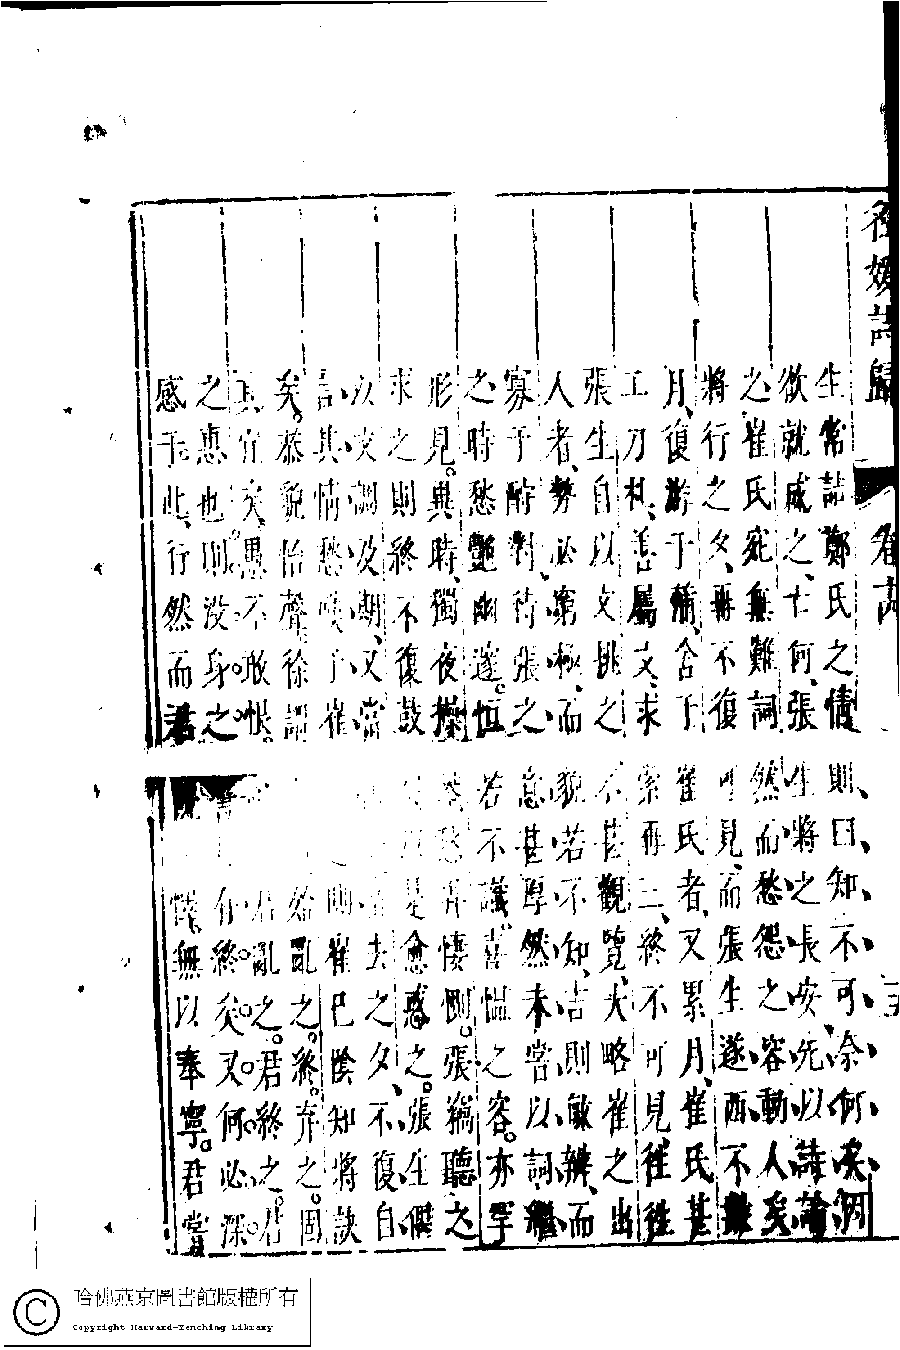 名媛詩歸 卷
生常詰鄭氏之情則曰知不可奈何矣因
欲就成之亡何張生將之長安先以詩諭
之崔氏宛無難詞然而愁怨之容動人矣
將行之夕再不復可見而張生遂西不數
月復游于蒲舍于崔氏者又累月崔氏甚
工刀札善屬文求索再三終不可見往往
張生自以文挑之不甚觀覽大略崔之出
人者勢必窮極而貌若不知言則敏辨而
寡于酧對待張之意甚厚然未嘗以詞繼
之時愁艷幽邃恒若不識喜慍之容亦罕
形見異時獨夜操琴愁弄悽惻張竊聽之
求之則終不復鼓以是愈惑之張生俄
以文調及期又當去之夕不復自
言其情愁嘆于崔側崔已陰知將訣
矣恭貌怡聲徐謂始亂之終弃之固
其宜矣愚不敢恨君亂之君終之君
之惠也則没身之誓有終矣又何必深
感于此行然而君懌無以奉寧君嘗
哈佛燕京圖書館版權所有
Copyright Harvard-Yenching Library